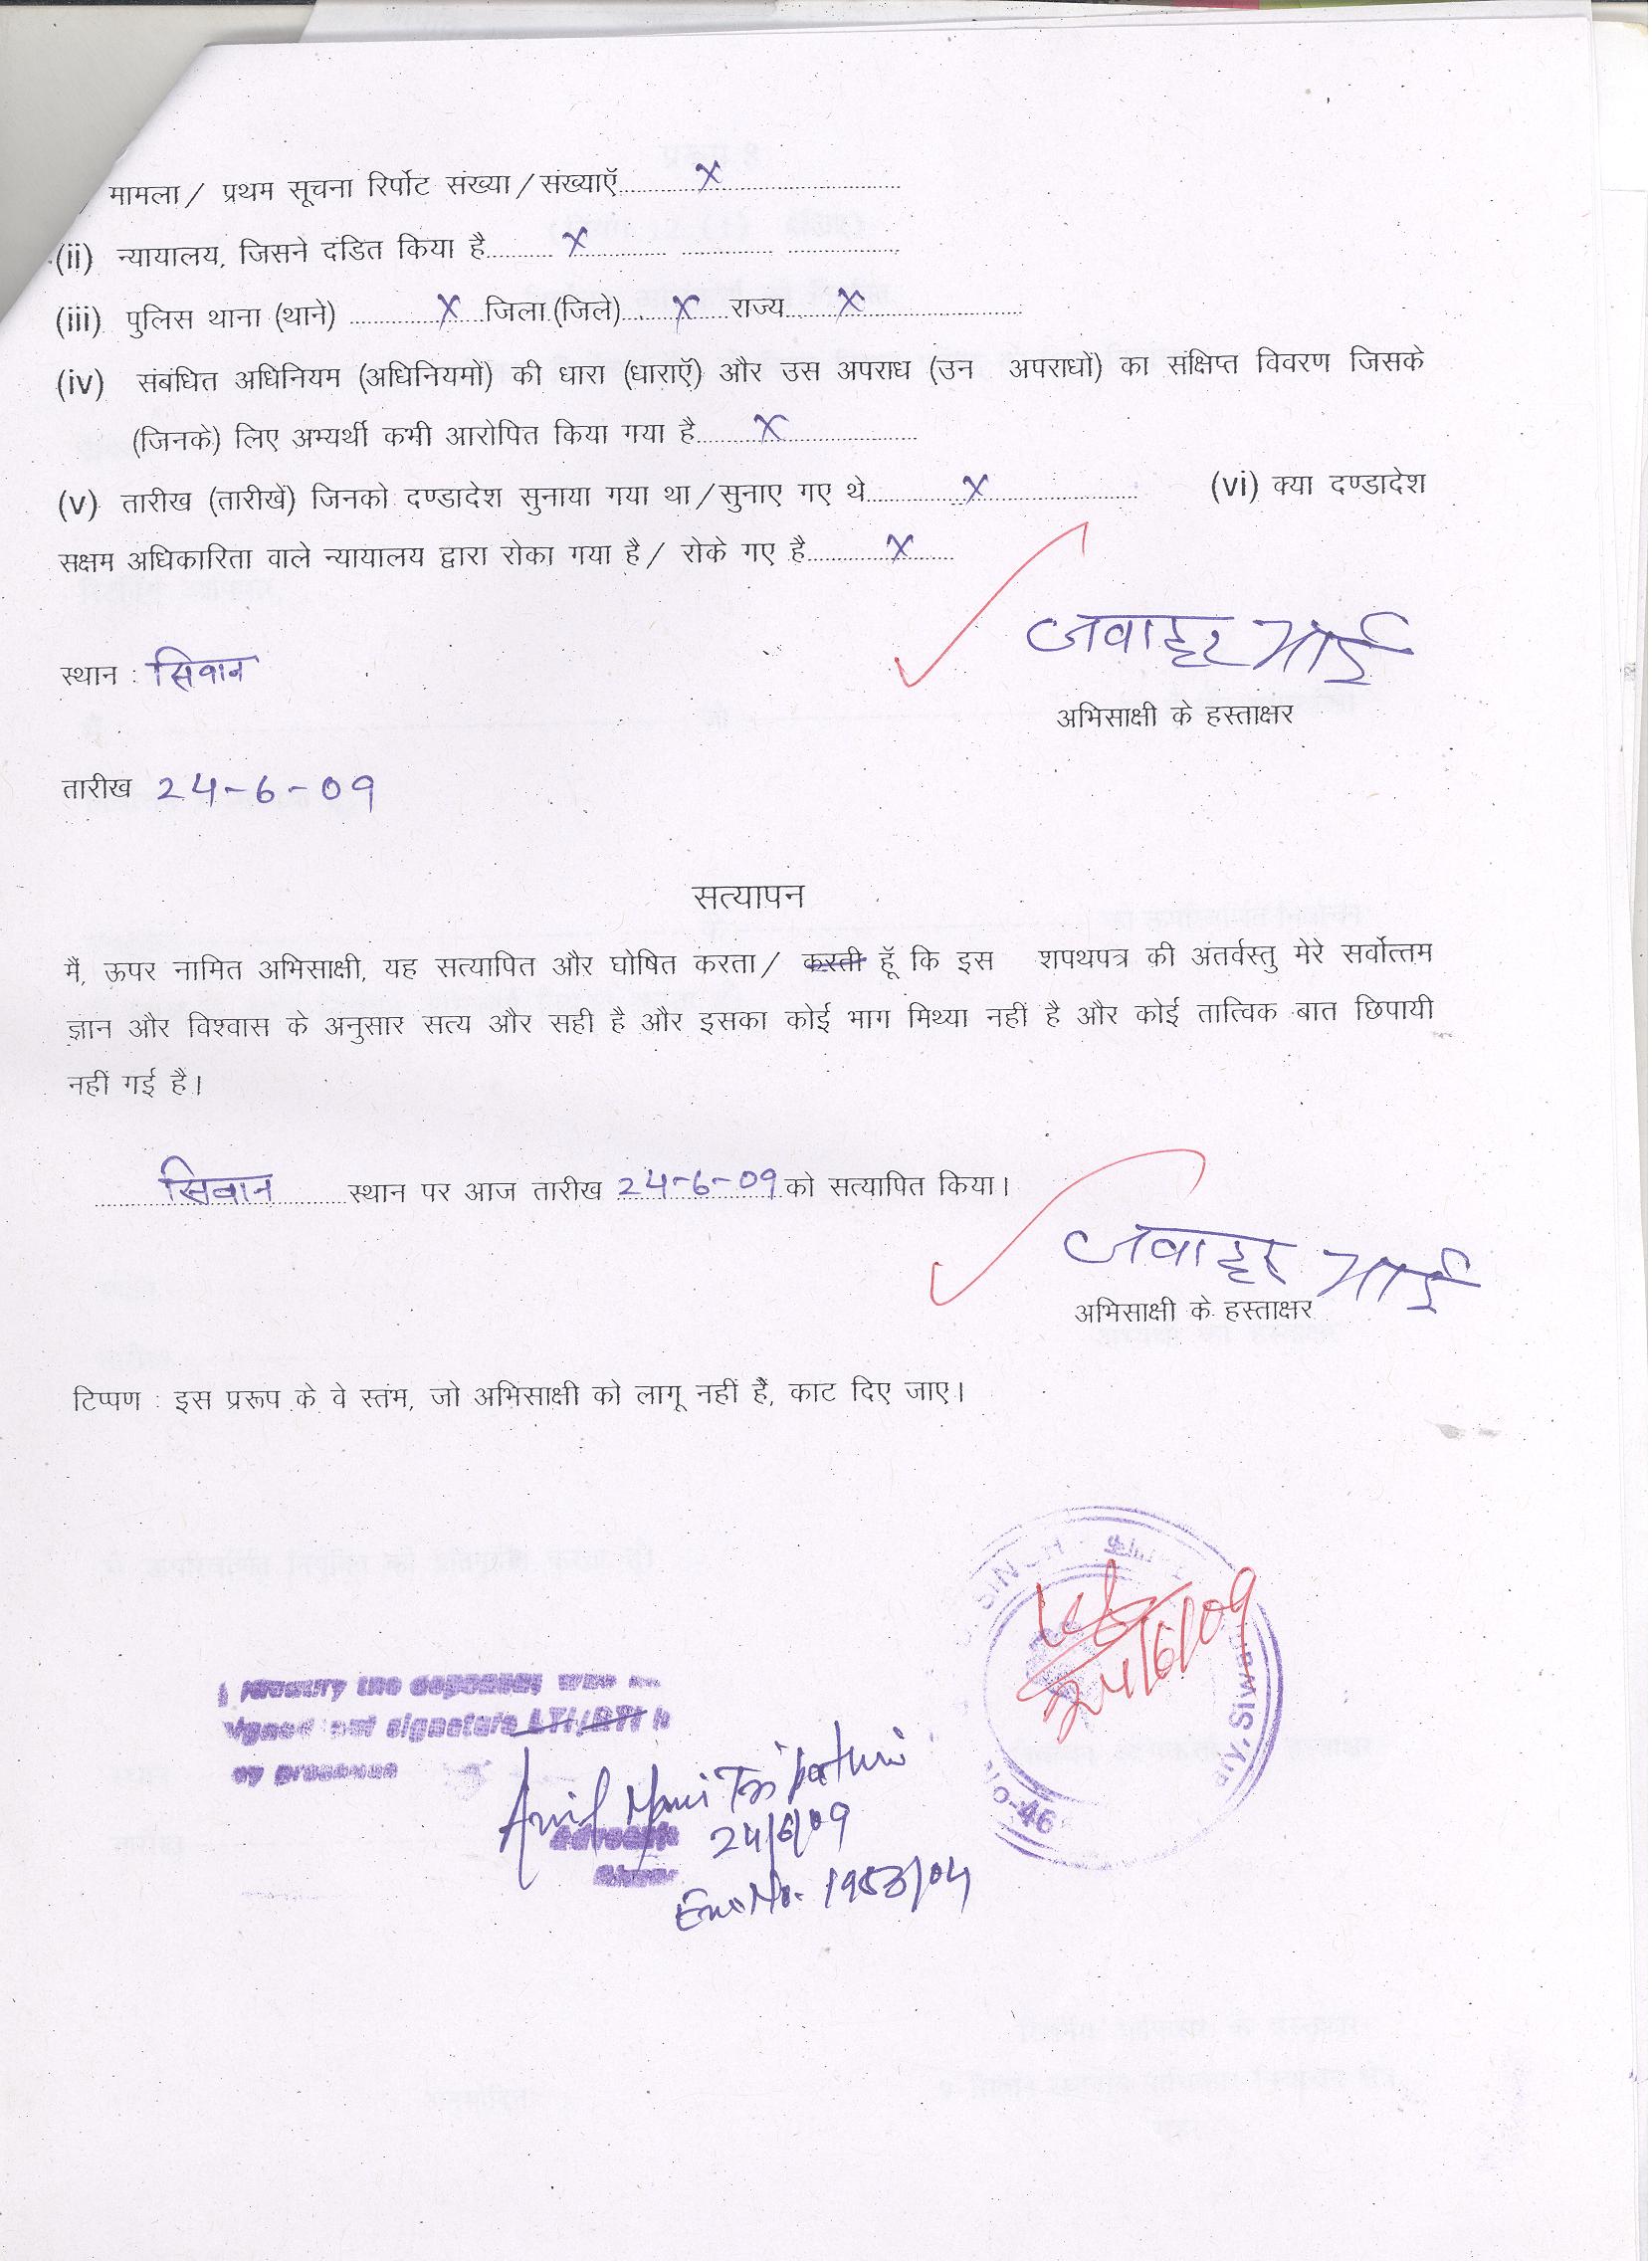 मामला / प्रथम सूचना रिर्पोट संख्या / संख्याऍ.............X.............
(ii) न्यायालय, जिसने दंडित किया है..........X.............
(iii) पुलिस थाना (थाने) ..............X....जिला (जिले)......X.....राज्य......X..............
(iv) संबंधित अधिनियम (अधिनियमों) की धारा (धाराऍ) और उस अपराध (उन अपराधों) का संक्षिप्त विवरण जिसके
(जिनके) लिए अभ्यर्थी कभी आरोपित किया गया है.........X.............
(v) तारीख (तारीखें) जिनको दण्डादेश सुनाया गया था / सुनाए गए थे..............X.............. (vi) क्या दण्डादेश
सक्षम अधिकारिता वाले न्यायालय द्वारा रोका गया है / रोके गए है............X......
जवाहर भाई
स्थान : सिवान
अभिसाक्षी के हस्ताक्षर
तारीख 24-6-09
सत्यापन
मैं, ऊपर नामित अभिसाक्षी, यह सत्यापित और घोषित करता / करती हूॅ कि इस शपथपत्र की अंतर्वस्तु मेरे सर्वोत्तम
ज्ञान और विश्वास के अनुसार सत्य और सही है और इसका कोई भाग मिथ्या नहीं है और कोई तात्विक बात छिपायी
नहीं गई है।
सिवान स्थान पर आज तारीख 24-6-09 को सत्यापित किया।
जवाहर भाई
अभिसाक्षी के हस्ताक्षर
टिप्पण : इस प्ररूप के वे स्तंम, जो अभिसाक्षी को लागू नहीं हैं, काट दिए जाए।
SINGH
24/6/09
Siwan
No-46
the deponent
signature LTI/RTI
Anil Mani Tripathi
Advocate
24/6/09
Siwan
En. No. 1953/04